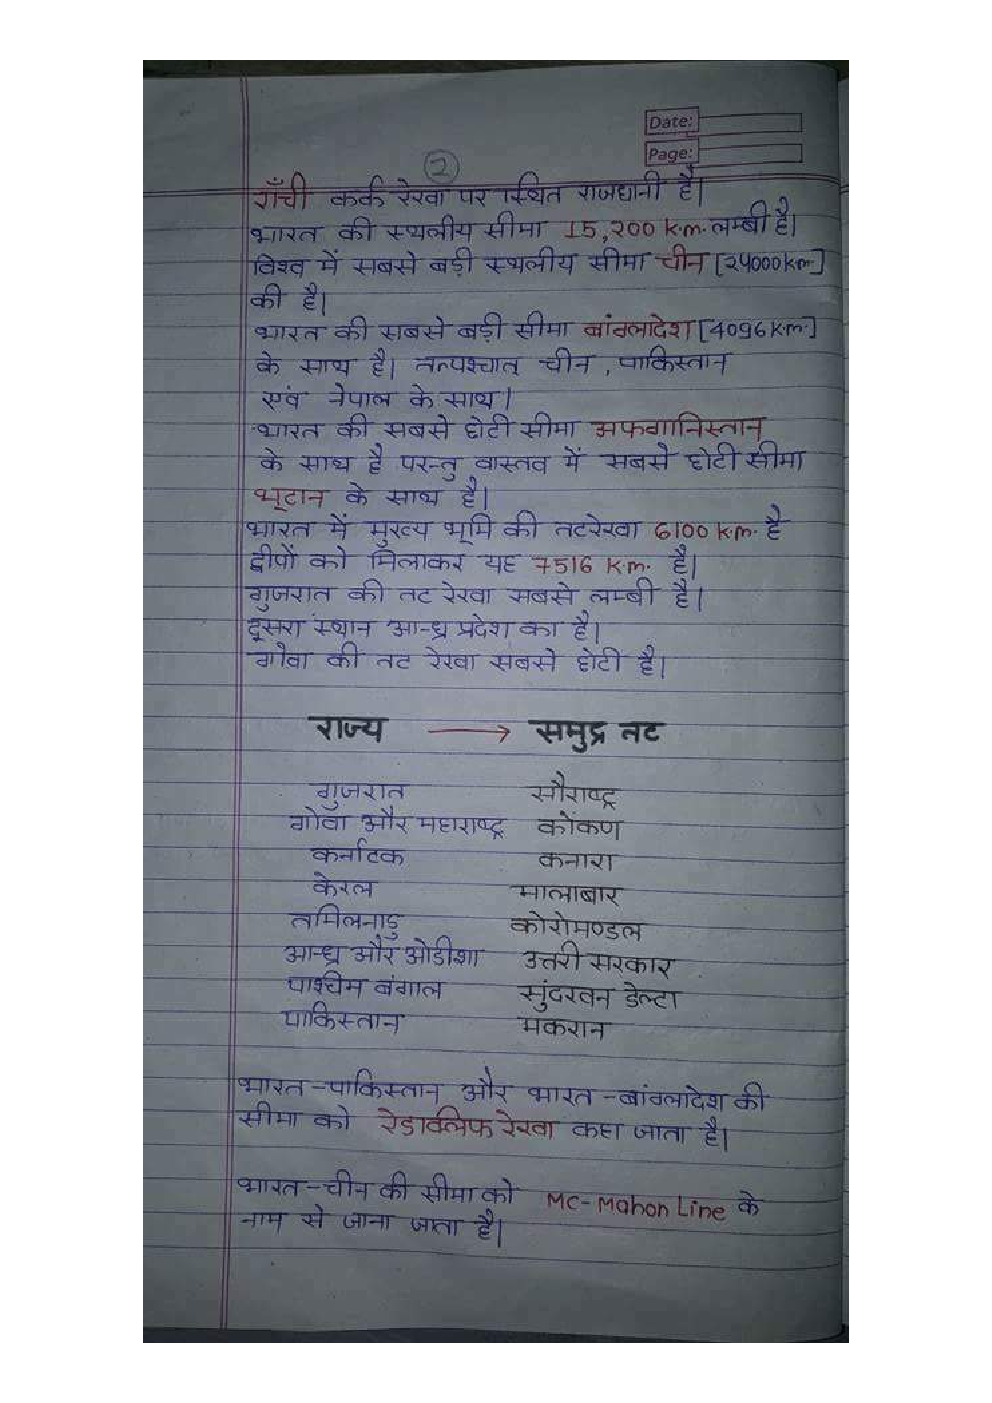 Date:
Page:
2
राँची कर्क रेखा पर स्थित राजधानी है।
भारत की स्थलीय सीमा 15,200 k.m. लम्बी है।
विश्व में सबसे बड़ी स्थलीय सीमा चीन [24000 k.m.]
की है।
भारत की सबसे बड़ी सीमा बांग्लादेश [4096 k.m.]
के साथ है। तत्पश्चात चीन, पाकिस्तान
एवं नेपाल के साथ।
भारत की सबसे छोटी सीमा अफगानिस्तान
के साथ है परन्तु वास्तव में सबसे छोटी सीमा
भूटान के साथ है।
भारत में मुख्य भूमि की तटरेखा 6100 k.m. है
द्वीपों को मिलाकर यह 7516 k.m. है।
गुजरात की तट रेखा सबसे लम्बी है।
दूसरा स्थान आन्ध्र प्रदेश का है।
गोवा की तट रेखा सबसे छोटी है।
राज्य → समुद्र तट
गुजरात सौराष्ट्र
गोवा और महाराष्ट्र कोंकण
कर्नाटक कनारा
केरल मालाबार
तमिलनाडु कोरोमण्डल
आन्ध्र और ओडीशा उत्तरी सरकार
पाश्चिम बंगाल सुंदरवन डेल्टा
पाकिस्तान मकरान
भारत-पाकिस्तान और भारत-बांग्लादेश की
सीमा को रेडाक्लिफ रेखा कहा जाता है।
भारत-चीन की सीमा को Mc-Mahon Line के
नाम से जाना जाता है।